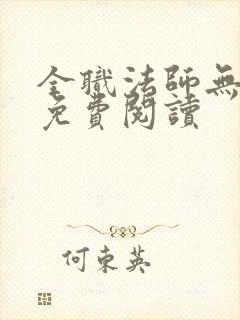 全職法師無
免費閱讀
何東英